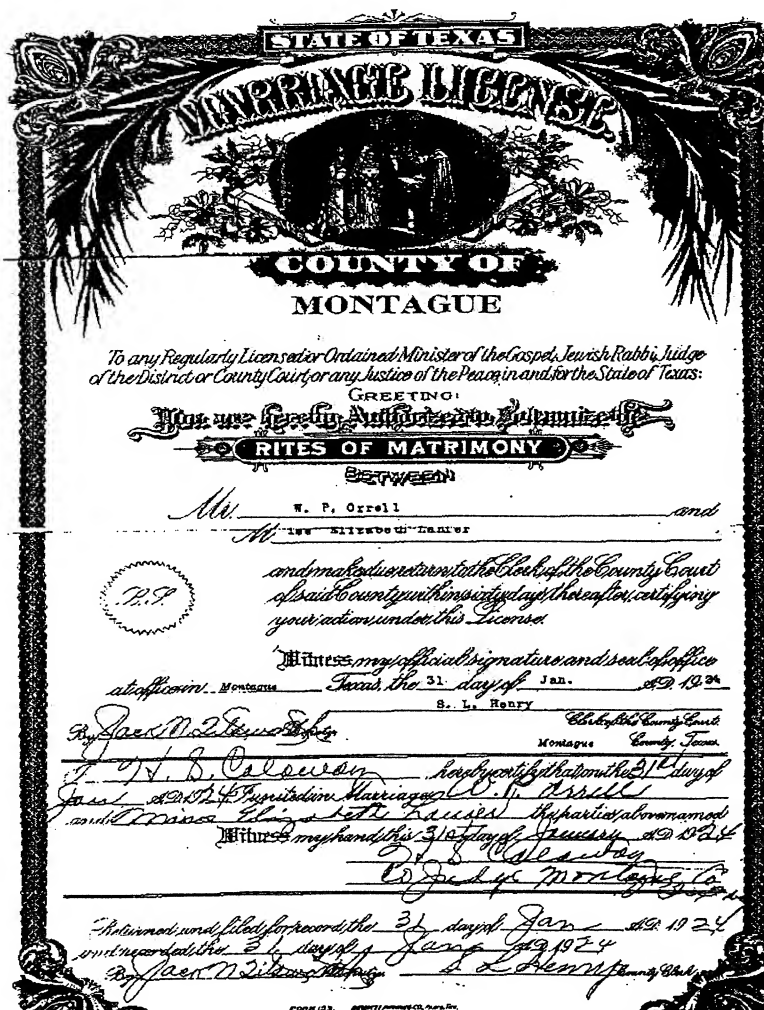 STATE OF TEXAS
MARRIAGE LICENSE.
COUNTY OF
MONTAGUE
To any Regularly Licensed or Ordained Minister of the Gospel, Jewish Rabbi, Judge
of the District or County Court, or any Justice of the Peace, in and for the State of Texas:
GREETING:
You are hereby Authorized to Solemnize the
RITES OF MATRIMONY
BETWEEN
Mr. W. P. Orrell and
M iss Elizabeth
and make due return to the Clerk of the County Court
of said County within sixty days thereafter, certifying
your action under this License.
Witness my official signature and seal of office
at office in Montague Texas, the 31 day of Jan. A.D. 1924
S. L. Henry
By Jack N. Deputy Clerk of the County Court
Montague County, Texas.
I H. S. Calaway hereby certify that on the 31st day of
Jan A.D. 1924 I united in Marriage W. P. Orrell
and Elizabeth the parties above named
Witness my hand this 31st day of January A.D. 1924
H S Calaway
Co Judge Montague Co
Texas
Returned and filed for record the 31 day of Jan A.D. 1924
and recorded the 31 day of Jan A.D. 1924
By Jack N Deputy S L Henry County Clerk